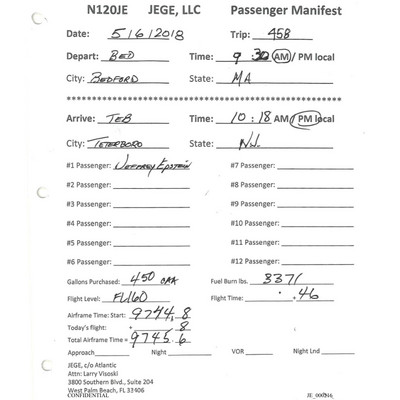 N120JE JEGE, LLC Passenger Manifest
Date: 5/6/2018 Trip: 458
Depart: BED Time: 9:30 AM / PM local
City: BEDFORD State: MA
Arrive: TEB Time: 10:18 AM / PM local
City: TETERBORO State: NJ
#1 Passenger: JEFFREY EPSTEIN #7 Passenger:
#2 Passenger: #8 Passenger:
#3 Passenger: #9 Passenger:
#4 Passenger: #10 Passenger:
#5 Passenger: #11 Passenger:
#6 Passenger: #12 Passenger:
Gallons Purchased: 450 Fuel Burn lbs. 3371
Flight Level: FL160 Flight Time: .46
Airframe Time: Start: 9744.8
Today's flight: .8
Total Airframe Time = 9745.6
Approach Night VOR Night Lnd
JEGE, c/o Atlantic
Attn: Larry Visoski
3800 Southern Blvd., Suite 204
West Palm Beach, FL 33406
CONFIDENTIAL